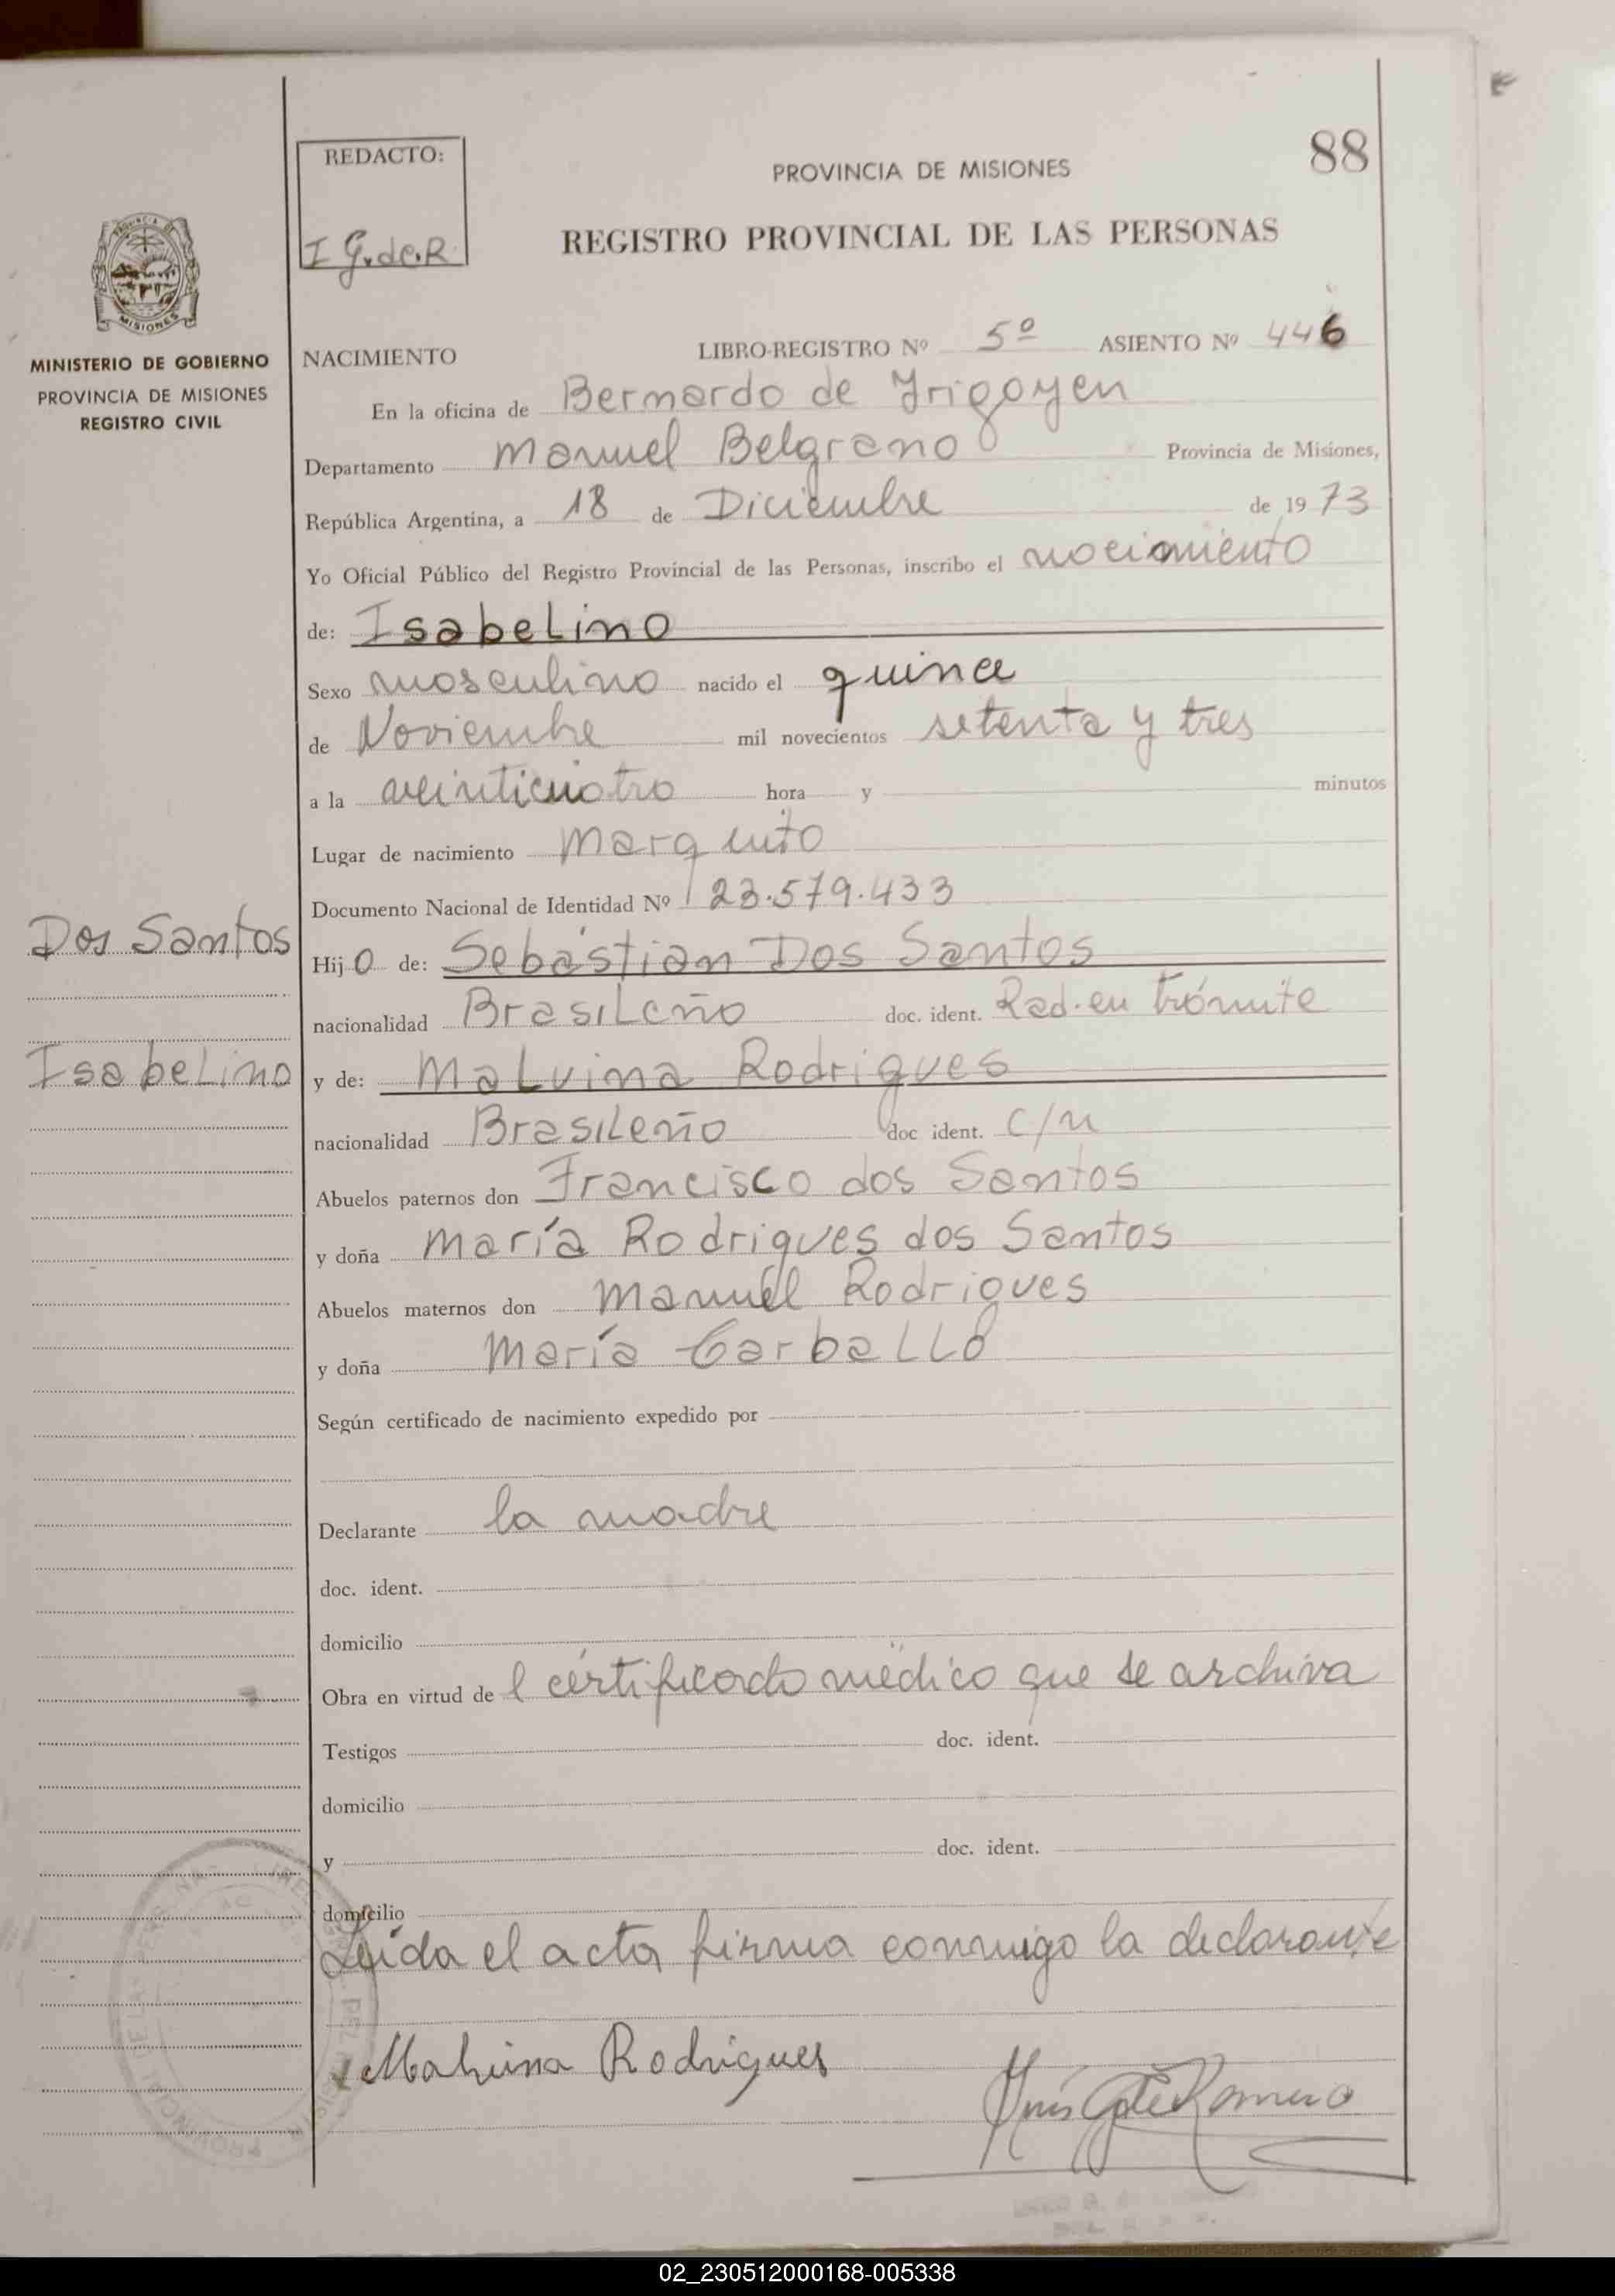 88
REDACTO:
I G. de R.
PROVINCIA DE MISIONES
REGISTRO PROVINCIAL DE LAS PERSONAS
MISIONES
MINISTERIO DE GOBIERNO
PROVINCIA DE MISIONES
REGISTRO CIVIL
NACIMIENTO LIBRO-REGISTRO Nº 5º ASIENTO Nº 446
En la oficina de Bernardo de Yrigoyen
Departamento Manuel Belgrano Provincia de Misiones,
República Argentina, a 18 de Diciembre de 1973
Yo Oficial Público del Registro Provincial de las Personas, inscribo el nacimiento
de: Isabelino
Sexo masculino nacido el quince
de Noviembre mil novecientos setenta y tres
a la veinticuatro hora y minutos
Lugar de nacimiento Marquito
Documento Nacional de Identidad Nº 23.579.433
Dos Santos
Hijo de: Sebástian Dos Santos
nacionalidad Brasileño doc. ident. Rad. en trámite
Isabelino
y de: Malvina Rodrigues
nacionalidad Brasileño doc ident. C/n
Abuelos paternos don Francisco dos Santos
y doña María Rodrigues dos Santos
Abuelos maternos don Manuel Rodrigues
y doña María Carballo
Según certificado de nacimiento expedido por
Declarante la madre
doc. ident.
domicilio
Obra en virtud del certificado médico que se archiva
Testigos doc. ident.
domicilio
y doc. ident.
domicilio
Leída el acta firma conmigo la declarante
Malvina Rodrigues
02_230512000168-005338